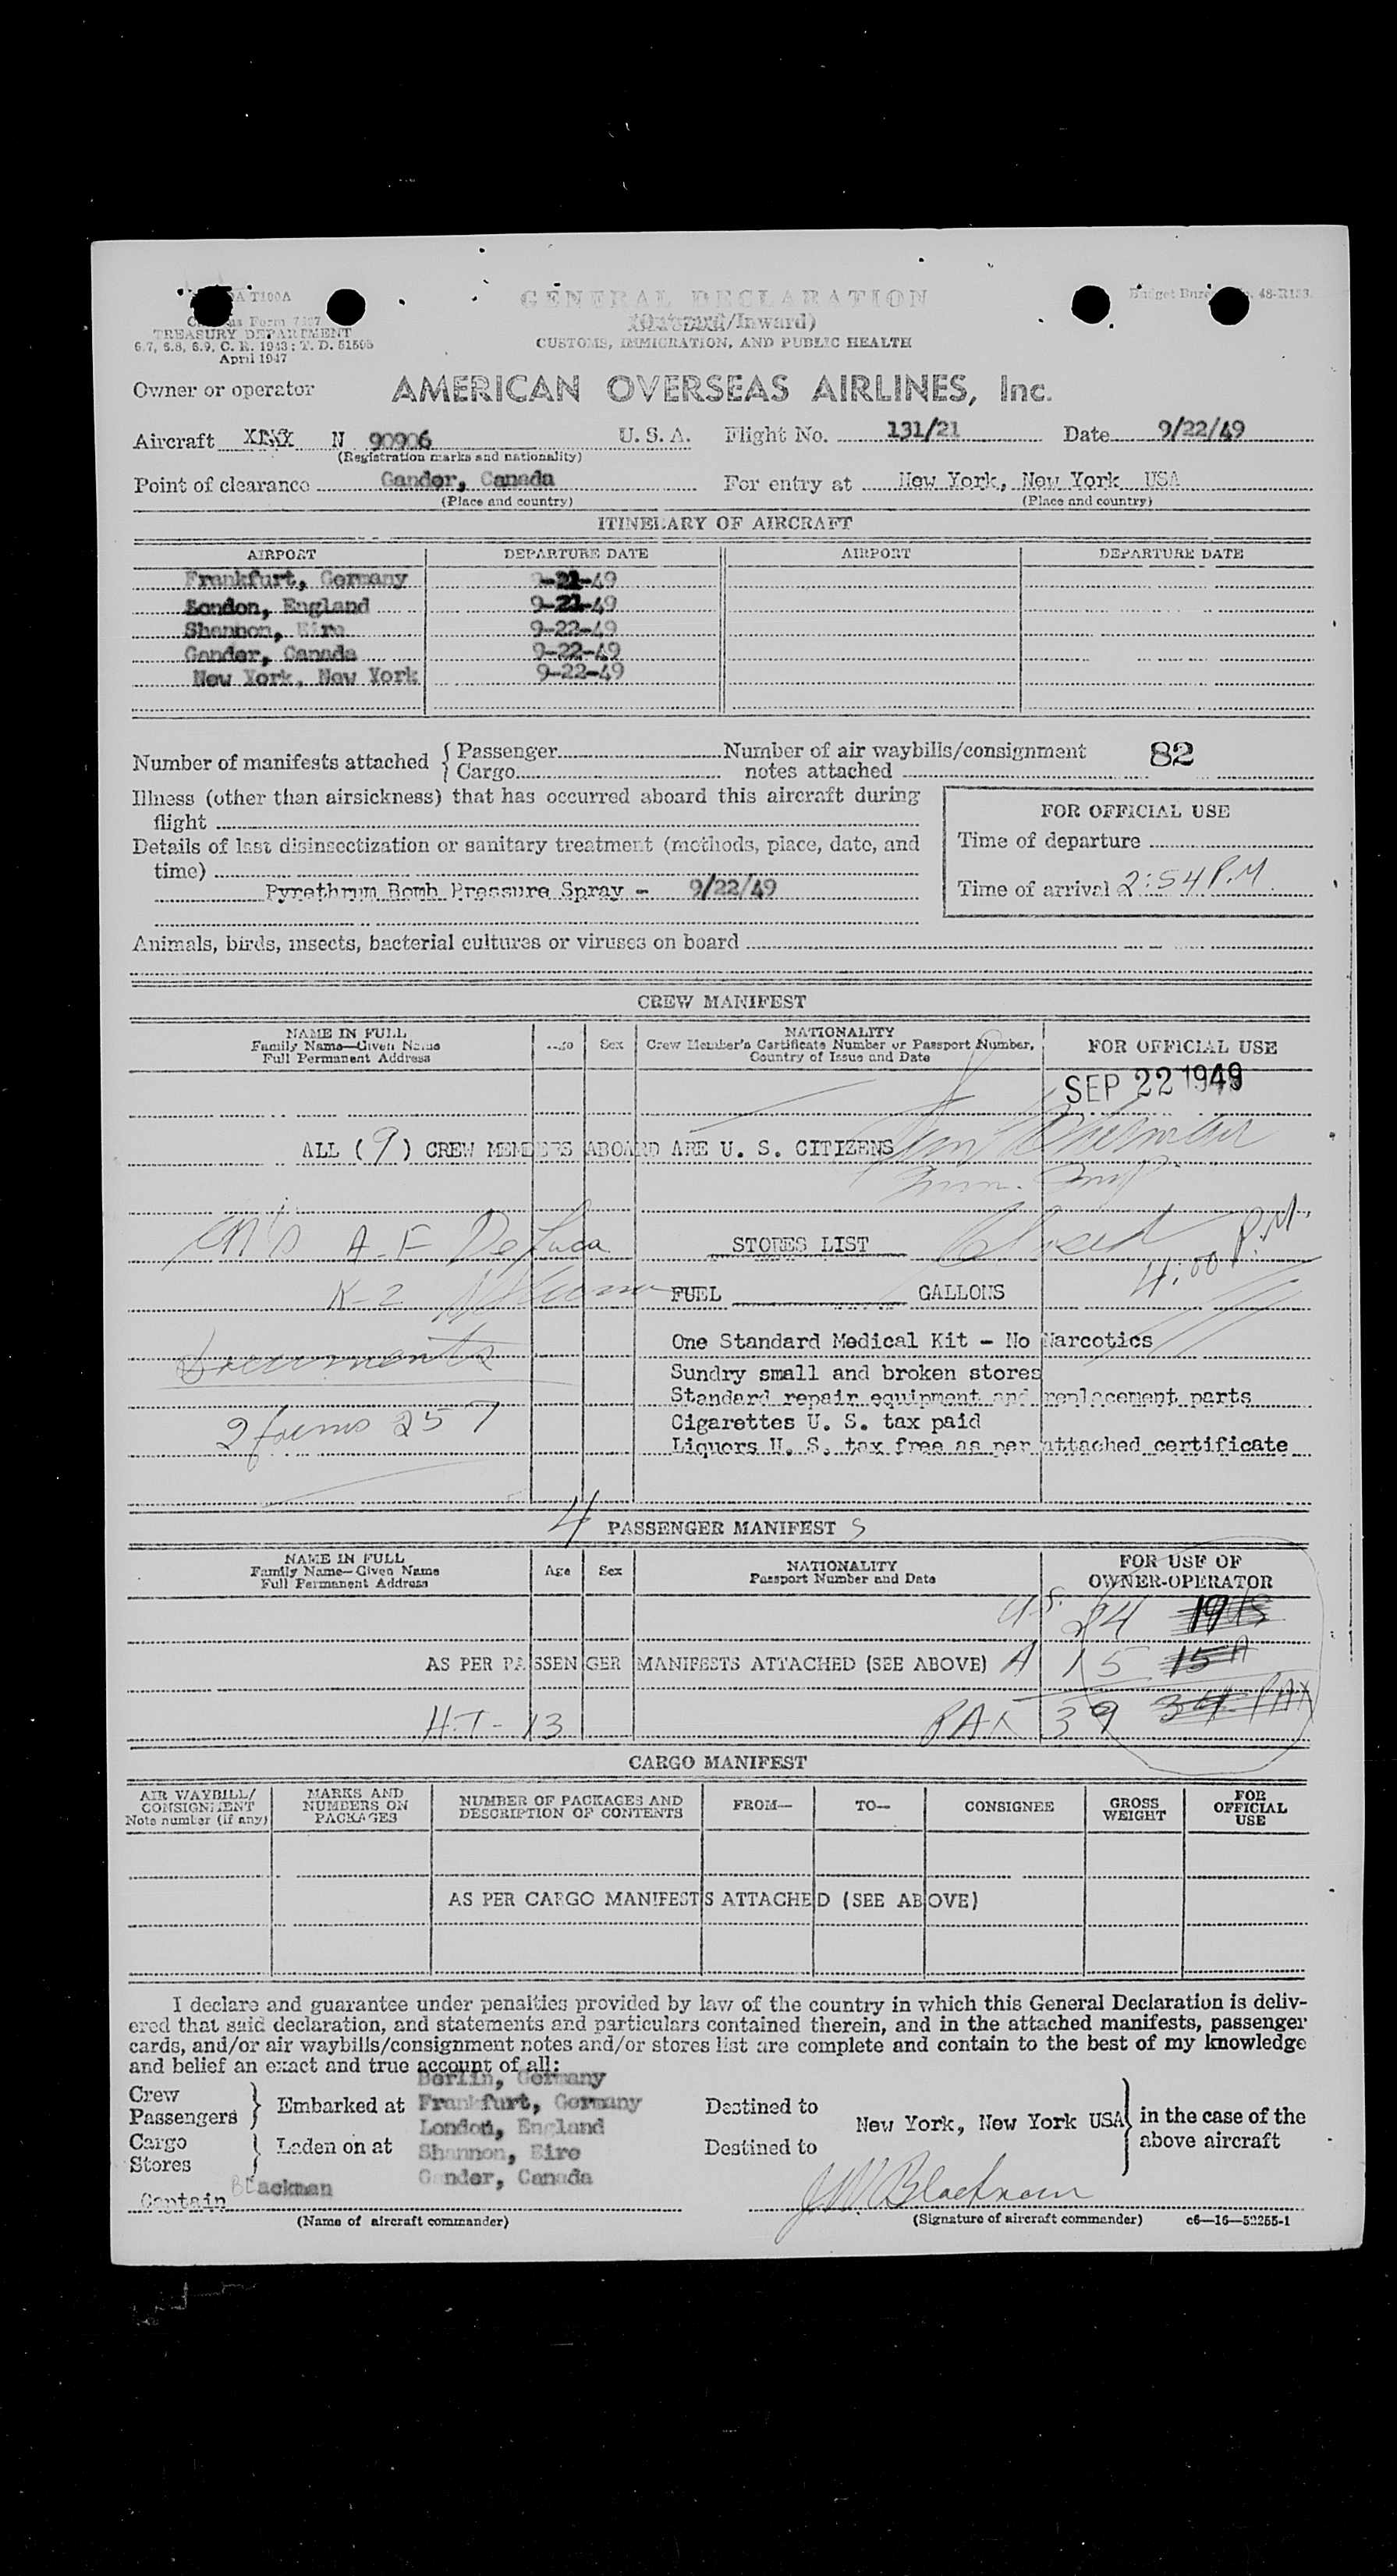 T100A
GENERAL DECLARATION
/Inward)
Customs Form 7507
TREASURY DEPARTMENT
6.7, 6.8, 6.9, C. R. 1943: T. D. 51595
April 1947
CUSTOMS, IMMIGRATION, AND PUBLIC HEALTH
Owner or operator AMERICAN OVERSEAS AIRLINES, Inc.
Aircraft N 90906 U. S. A. Flight No. 131/21 Date 9/22/49
(Registration marks and nationality)
Point of clearance Gander, Canada For entry at New York, New York USA
(Place and country) (Place and country)
ITINERARY OF AIRCRAFT
AIRPORT DEPARTURE DATE AIRPORT DEPARTURE DATE
Frankfurt, Germany 9-21-49
London, England 9-21-49
Shannon, Eire 9-22-49
Gander, Canada 9-22-49
New York, New York 9-22-49
Number of manifests attached { Passenger Number of air waybills/consignment 82
Cargo notes attached
Illness (other than airsickness) that has occurred aboard this aircraft during
flight
FOR OFFICIAL USE
Details of last disinsectization or sanitary treatment (methods, place, date, and
time)
Time of departure
Pyrethrum Bomb Pressure Spray - 9/22/49
Time of arrival 2:54 P.M.
Animals, birds, insects, bacterial cultures or viruses on board
CREW MANIFEST
NAME IN FULL
Family Name—Given Name
Full Permanent Address
Age Sex
NATIONALITY
Crew Member's Certificate Number or Passport Number,
Country of Issue and Date
FOR OFFICIAL USE
SEP 22 1949
ALL (9) CREW MEMBERS ABOARD ARE U. S. CITIZENS
Imm. Insp
A. F. DeLuca
STORES LIST
Closed 4:00 P.M.
K-2
FUEL GALLONS
One Standard Medical Kit - No Narcotics
Documents
Sundry small and broken stores
Standard repair equipment and replacement parts
2 forms 257
Cigarettes U. S. tax paid
Liquors U. S. tax free as per attached certificate
4 PASSENGER MANIFEST S
NAME IN FULL
Family Name—Given Name
Full Permanent Address
Age Sex
NATIONALITY
Passport Number and Date
FOR USE OF
OWNER-OPERATOR
U.S. 24 19 US
AS PER PASSENGER MANIFESTS ATTACHED (SEE ABOVE) A 15 15 A
H.T-13 PAX 39 34 PAX
CARGO MANIFEST
AIR WAYBILL/
CONSIGNMENT
Note number (if any)
MARKS AND
NUMBERS ON
PACKAGES
NUMBER OF PACKAGES AND
DESCRIPTION OF CONTENTS
FROM— TO— CONSIGNEE
GROSS
WEIGHT
FOR
OFFICIAL
USE
AS PER CARGO MANIFESTS ATTACHED (SEE ABOVE)
I declare and guarantee under penalties provided by law of the country in which this General Declaration is deliv-
ered that said declaration, and statements and particulars contained therein, and in the attached manifests, passenger
cards, and/or air waybills/consignment notes and/or stores list are complete and contain to the best of my knowledge
and belief an exact and true account of all:
Berlin, Germany
Crew
Passengers } Embarked at Frankfurt, Germany Destined to
London, England New York, New York USA } in the case of the
above aircraft
Cargo
Stores } Laden on at Shannon, Eire Destined to
Gander, Canada
Captain Blackman J W Blackman
(Name of aircraft commander) (Signature of aircraft commander) c6—16—52255-1